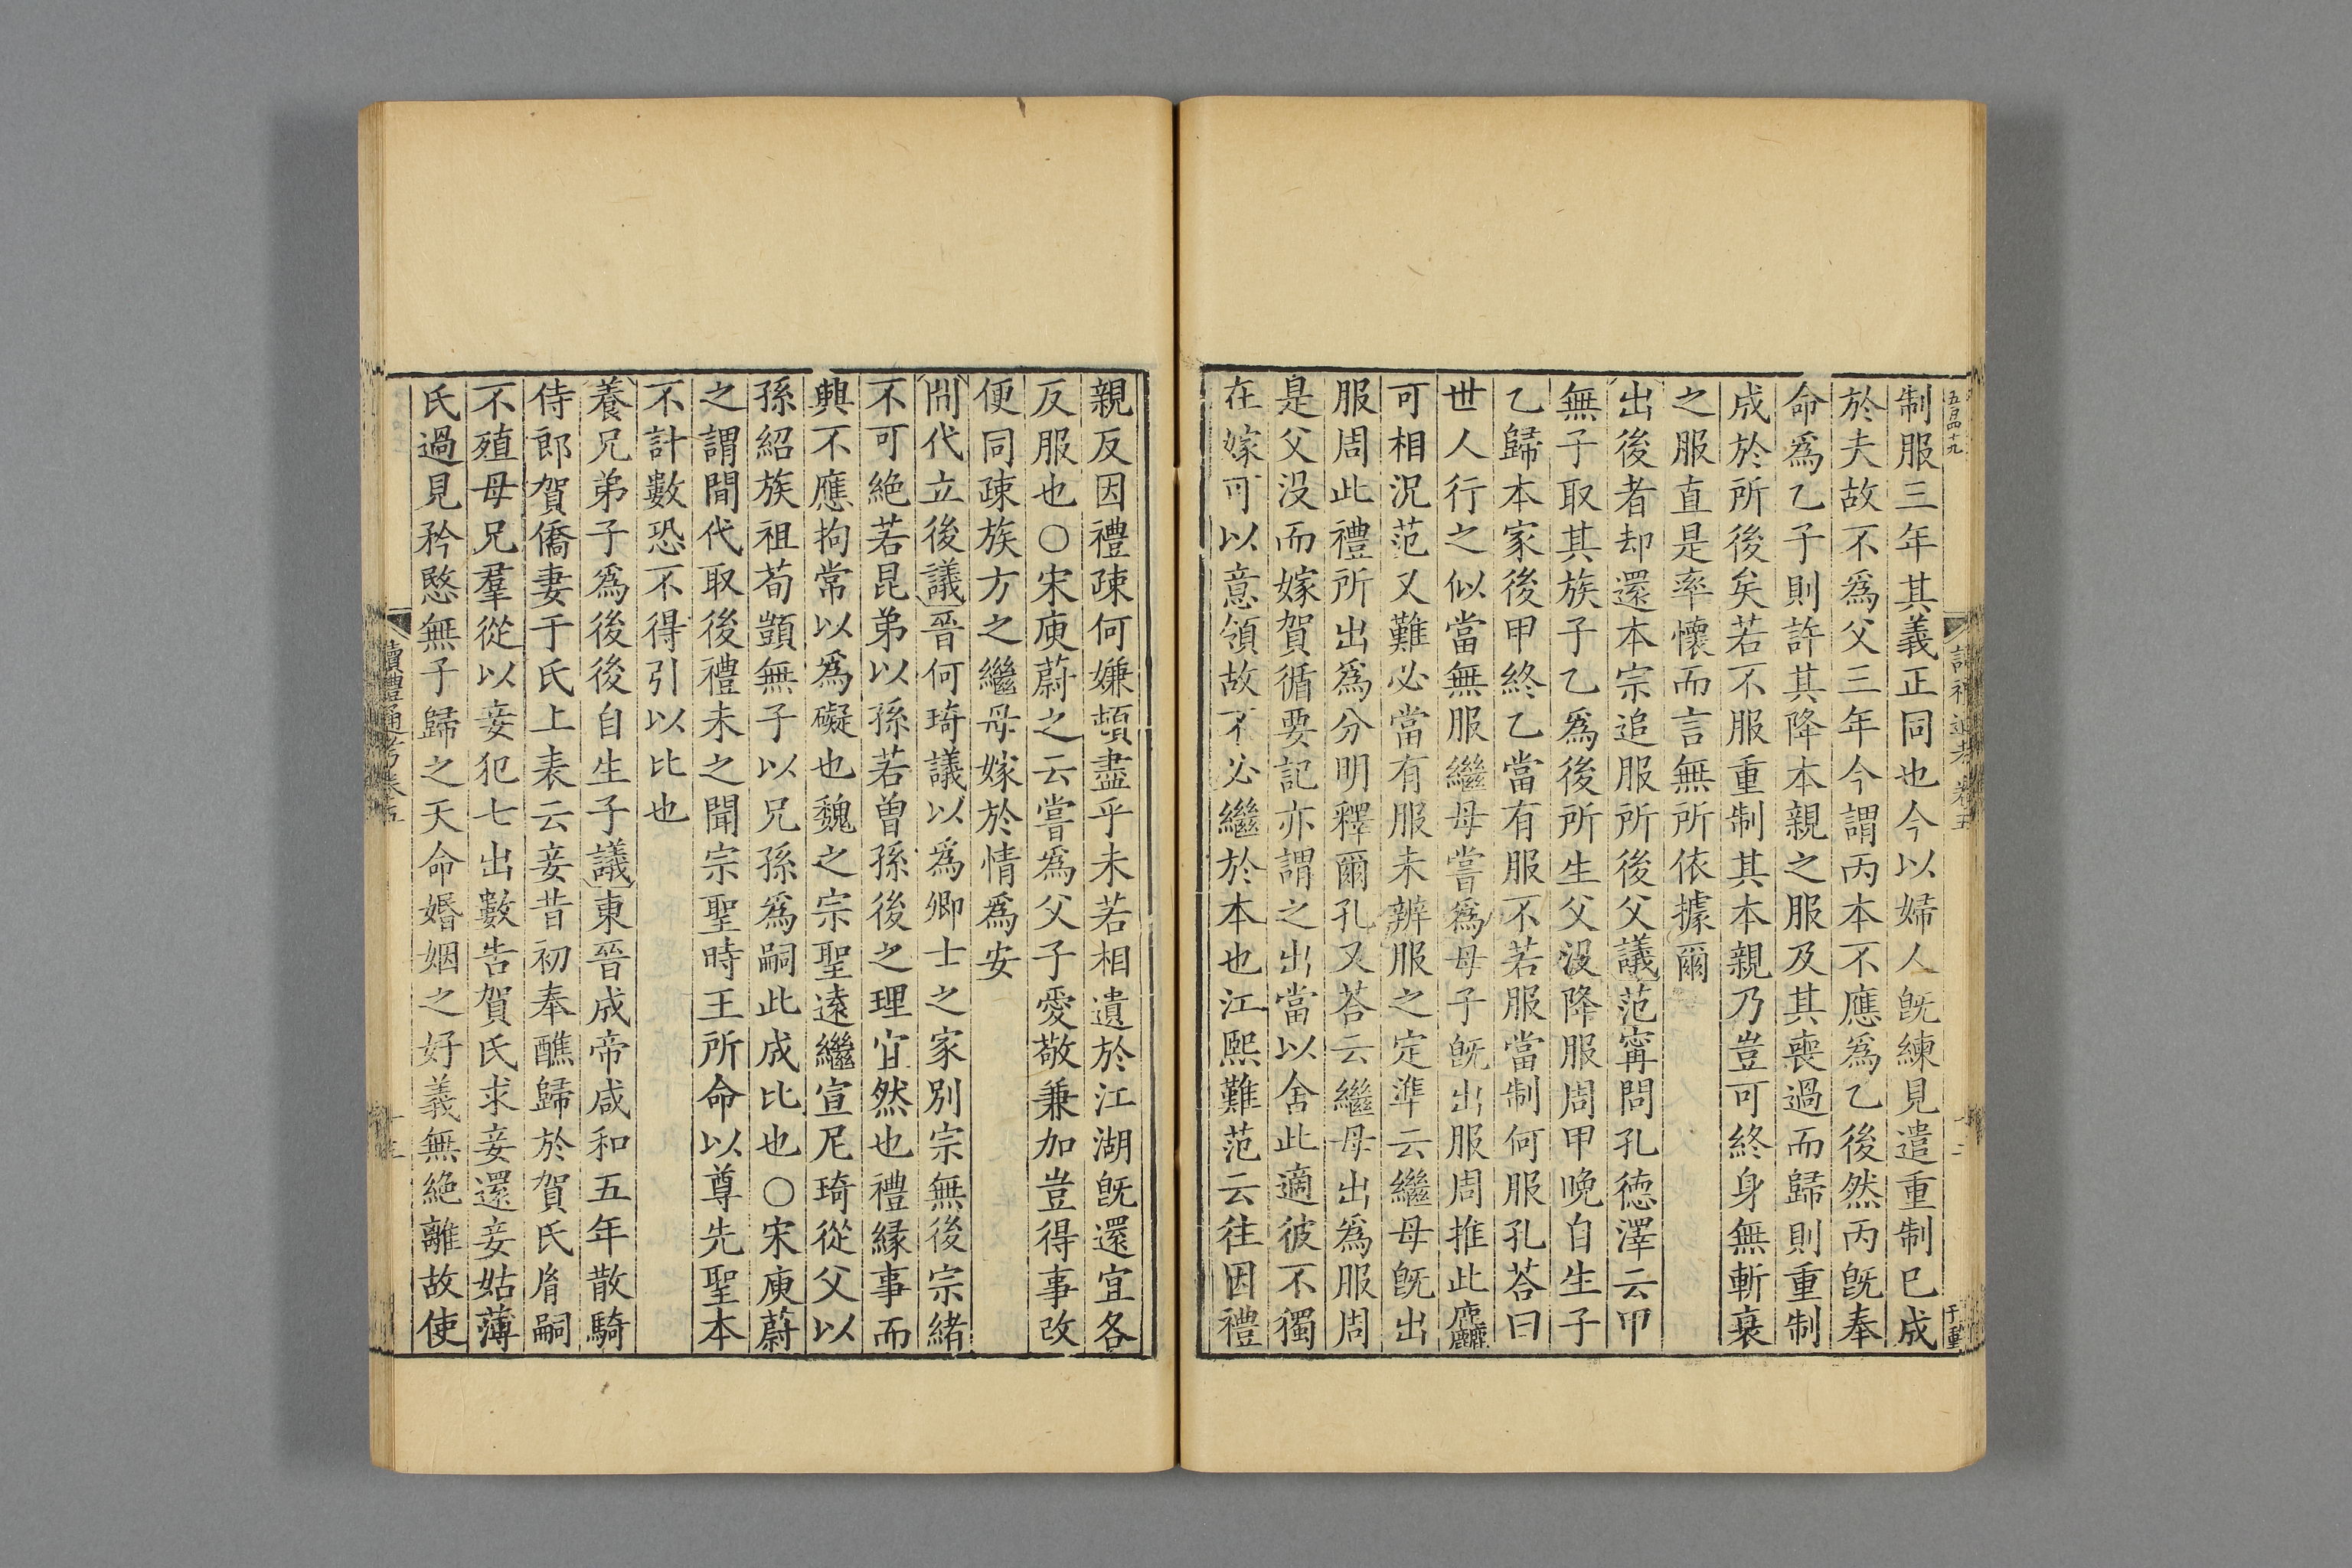 五百四十九
讀禮通考卷五
十二
于重
制服三年其義正同也今以婦人旣練見遣重制已成
於夫故不爲父三年今謂丙本不應爲乙後然丙旣奉
命爲乙子則許其降本親之服及其喪過而歸則重制
成於所後矣若不服重制其本親乃豈可終身無斬衰
之服直是率懷而言無所依據爾
出後者却還本宗追服所後父議范甯問孔德澤云甲
無子取其族子乙爲後所生父沒降服周甲晚自生子
乙歸本家後甲終乙當有服不若服當制何服孔荅曰
世人行之似當無服繼母嘗爲母子旣出服周推此麤
可相況范又難必當有服未辨服之定準云繼母旣出
服周此禮所出爲分明釋爾孔又荅云繼母出爲服周
是父没而嫁賀循要記亦謂之出當以舍此適彼不獨
在嫁可以意領故不必繼於本也江熙難范云往因禮
親反因禮疎何嫌頓盡乎未若相遺於江湖旣還宜各
反服也○宋庾蔚之云嘗爲父子愛敬兼加豈得事改
便同疎族方之繼母嫁於情爲安
閒代立後議晉何琦議以爲卿士之家別宗無後宗緒
不可絶若昆弟以孫若曾孫後之理宜然也禮緣事而
興不應拘常以爲礙也魏之宗聖遠繼宣尼琦從父以
孫紹族祖荀顗無子以兄孫爲嗣此成比也○宋庾蔚
之謂間代取後禮未之聞宗聖時王所命以尊先聖本
不計數恐不得引以比也
養兄弟子爲後後自生子議東晉成帝咸和五年散騎
侍郎賀僑妻于氏上表云妾昔初奉醮歸於賀氏胤嗣
不殖母兄羣從以妾犯七出數告賀氏求妾還妾姑薄
氏過見矜愍無子歸之天命婚姻之好義無絶離故使
讀禮通考卷五
十三